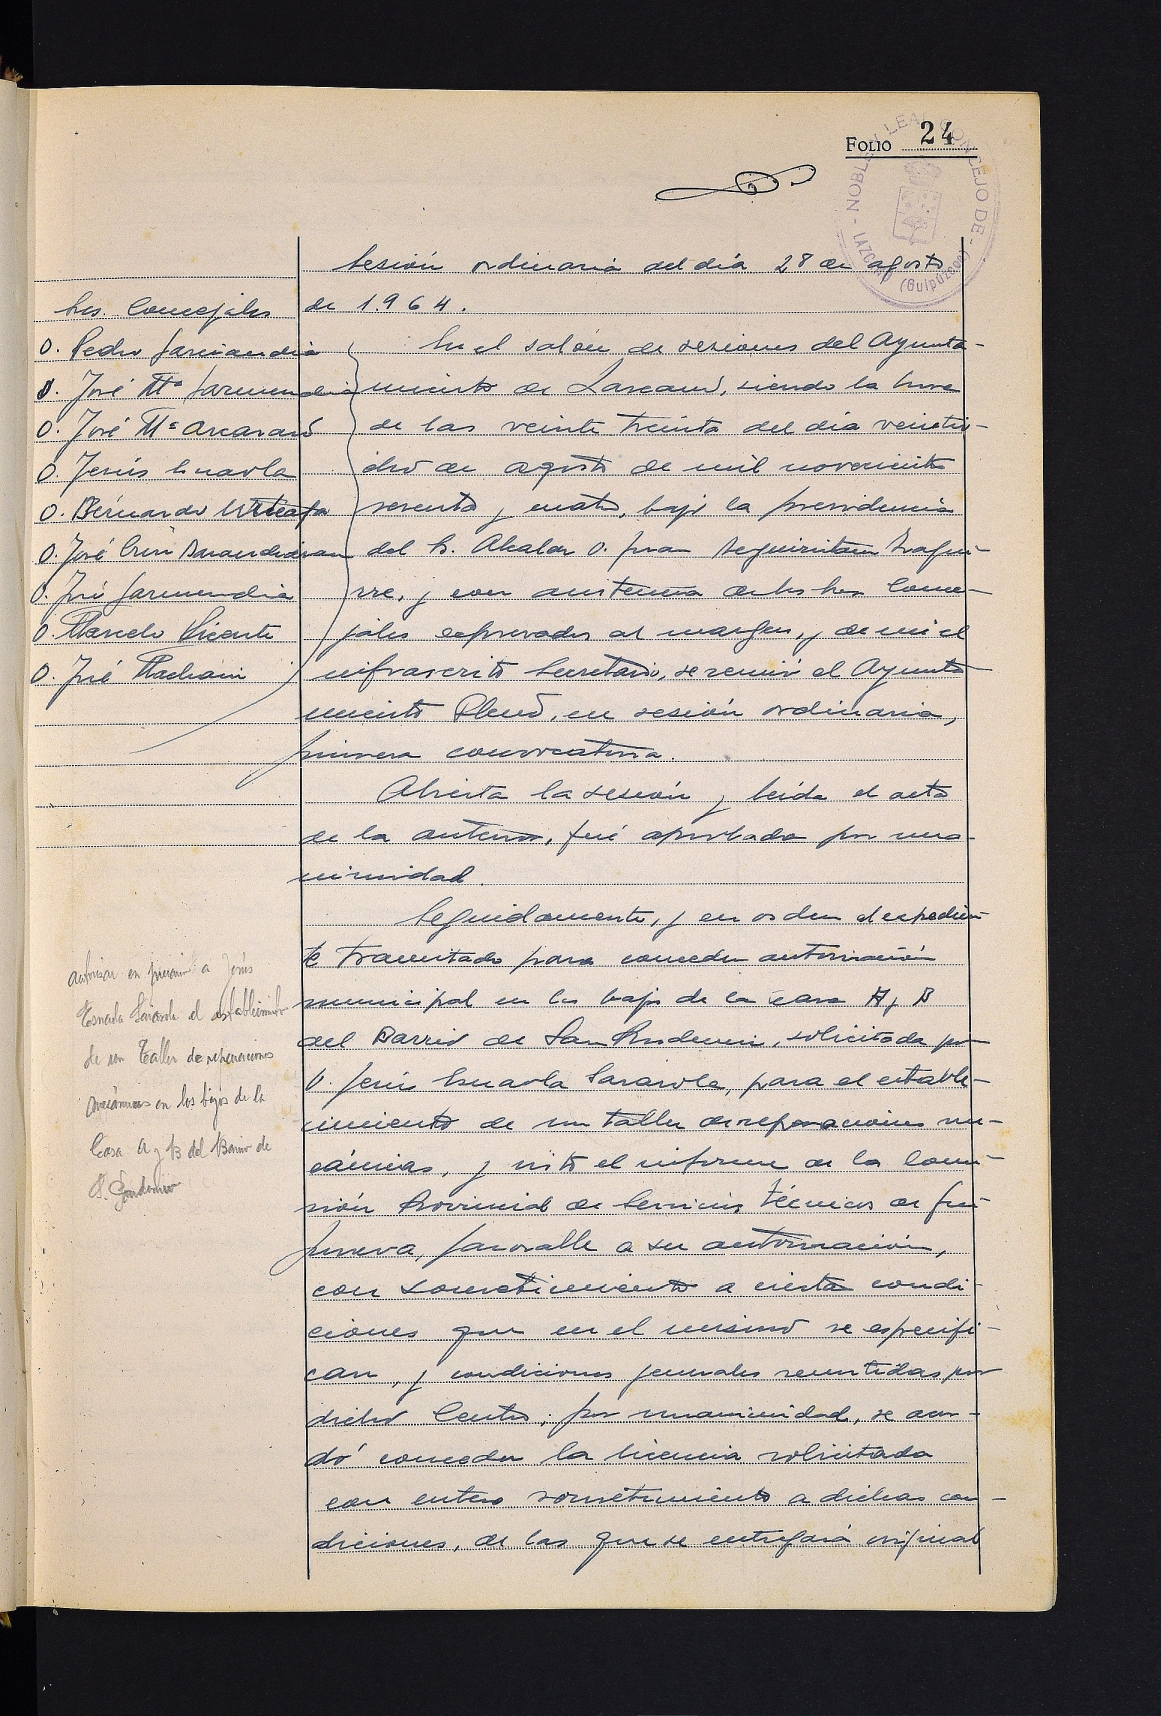 FOLIO 24
- NOBLE Y LEAL CONCEJO DE - LAZCANO (Guipúzcoa)
Sesión ordinaria del día 28 de agosto
de 1.964.
Sres. Concejales
D. Pedro Garmendia
D. José Mª Garmendia
D. José Mª
D. Jesús
D. Bernardo Urteaga
D. José Barandiaran
D. José Garmendia
D. Marcelo Vicente
D. José
En el salón de sesiones del Ayunta-
miento de Lazcano, siendo la hora
de las veinte treinta del día veinti-
ocho de agosto de mil novecientos
sesenta y cuatro, bajo la presidencia
del Sr. Alcalde D. Juan
rre, y con asistencia de los Sres Conce-
jales expresados al margen, y de mi el
infrascrito Secretario, se reunió el Ayunta
miento Pleno, en sesión ordinaria,
primera convocatoria.
Abierta la sesión y leida el acta
de la anterior, fué aprobada por una-
nimidad.
Seguidamente, y en orden al expedien-
te tramitado para conceder autorización
municipal en los bajos de la casa A y B
del Barrio de San Prudencio, solicitada por
D. Jesús Sarasola, para el estable-
cimiento de un taller de reparaciones me-
cánicas, y visto el informe de la Comi-
sión Provincial de Servicios Técnicos de Gui-
púzcoa, favorable a su autorización,
con sometimiento a ciertas condi-
ciones que en el mismo se especifi-
can, y condiciones generales remitidas por
dicho Centro, por unanimidad, se acor-
dó conceder la licencia solicitada
con entero sometimiento a dichas con-
diciones, de las que se entregará original
autorizar en a Jesús
Sarasola el establecimiento
de un Taller de reparaciones
mecánicas en los bajos de la
Casa A y B del Barrio de